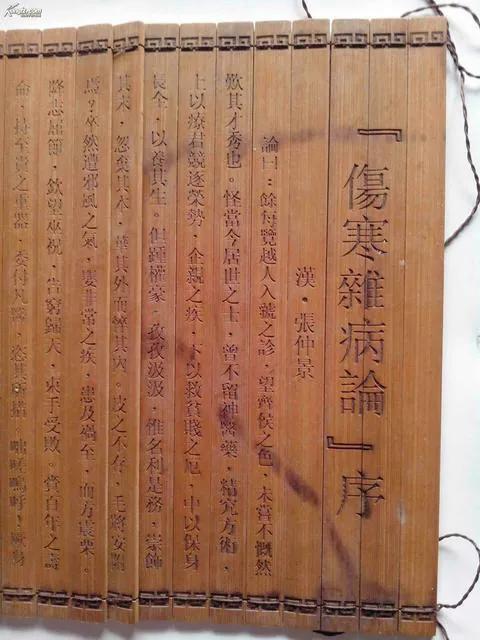 『傷寒雜病論』序
漢·張仲景
論曰：餘每覽越人入虢之診，望齊侯之色，未嘗不慨然
歎其才秀也。怪當今居世之士，曾不留神醫藥，精究方術，
上以療君競逐榮勢，企親之疾，下以救貧賤之厄，中以保身
長全，以養其生。但踵權豪，孜孜汲汲，惟名利是務，崇飾
其末，忽棄其本，華其外而悴其內。皮之不存，毛將安附
焉？卒然遭邪風之氣，嬰非常之疾，患及禍至，而方震栗。
降志屈節，欽望巫祝，告窮歸天，束手受敗。賫百年之壽
命，持至貴之重器，委付凡醫，恣其所措。咄嗟嗚呼！厥身